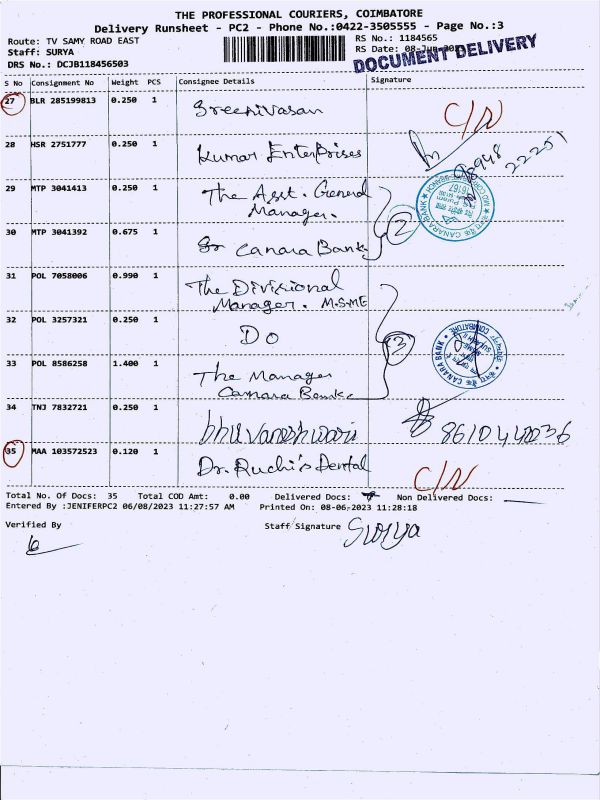 THE PROFESSIONAL COURIERS, COIMBATORE
Delivery Runsheet - PC2 - Phone No.:0422-3505555 - Page No.:3
Route: TV SAMY ROAD EAST
RS No.: 1184565
Staff: SURYA
RS Date: 08-Jun-2023
DRS No.: DCJB118456503
DOCUMENT DELIVERY
S No Consignment No Weight PCS Consignee Details Signature
27 BLR 285199813 0.250 1 Sreenivasan C/N
28 HSR 2751777 0.250 1 Kumar Enterprises
98948 22251
29 MTP 3041413 0.250 1 The Asst. General
Manager.
30 MTP 3041392 0.675 1 Sr Canara Bank 2
CANARA BANK
31 POL 7058006 0.990 1 The Divisional
Manager. M.S.ME
32 POL 3257321 0.250 1 Do
3
CANARA BANK
COIMBATORE
33 POL 8586258 1.400 1 The Manager
Canara Bank
34 TNJ 7832721 0.250 1 bhuvaneshwari 8610442036
35 MAA 103572523 0.120 1 Dr. Ruchi's Dental C/N
Total No. Of Docs: 35 Total COD Amt: 0.00 Delivered Docs: Non Delivered Docs:
Entered By :JENIFERPC2 06/08/2023 11:27:57 AM Printed On: 08-06-2023 11:28:18
Verified By Staff Signature Surya